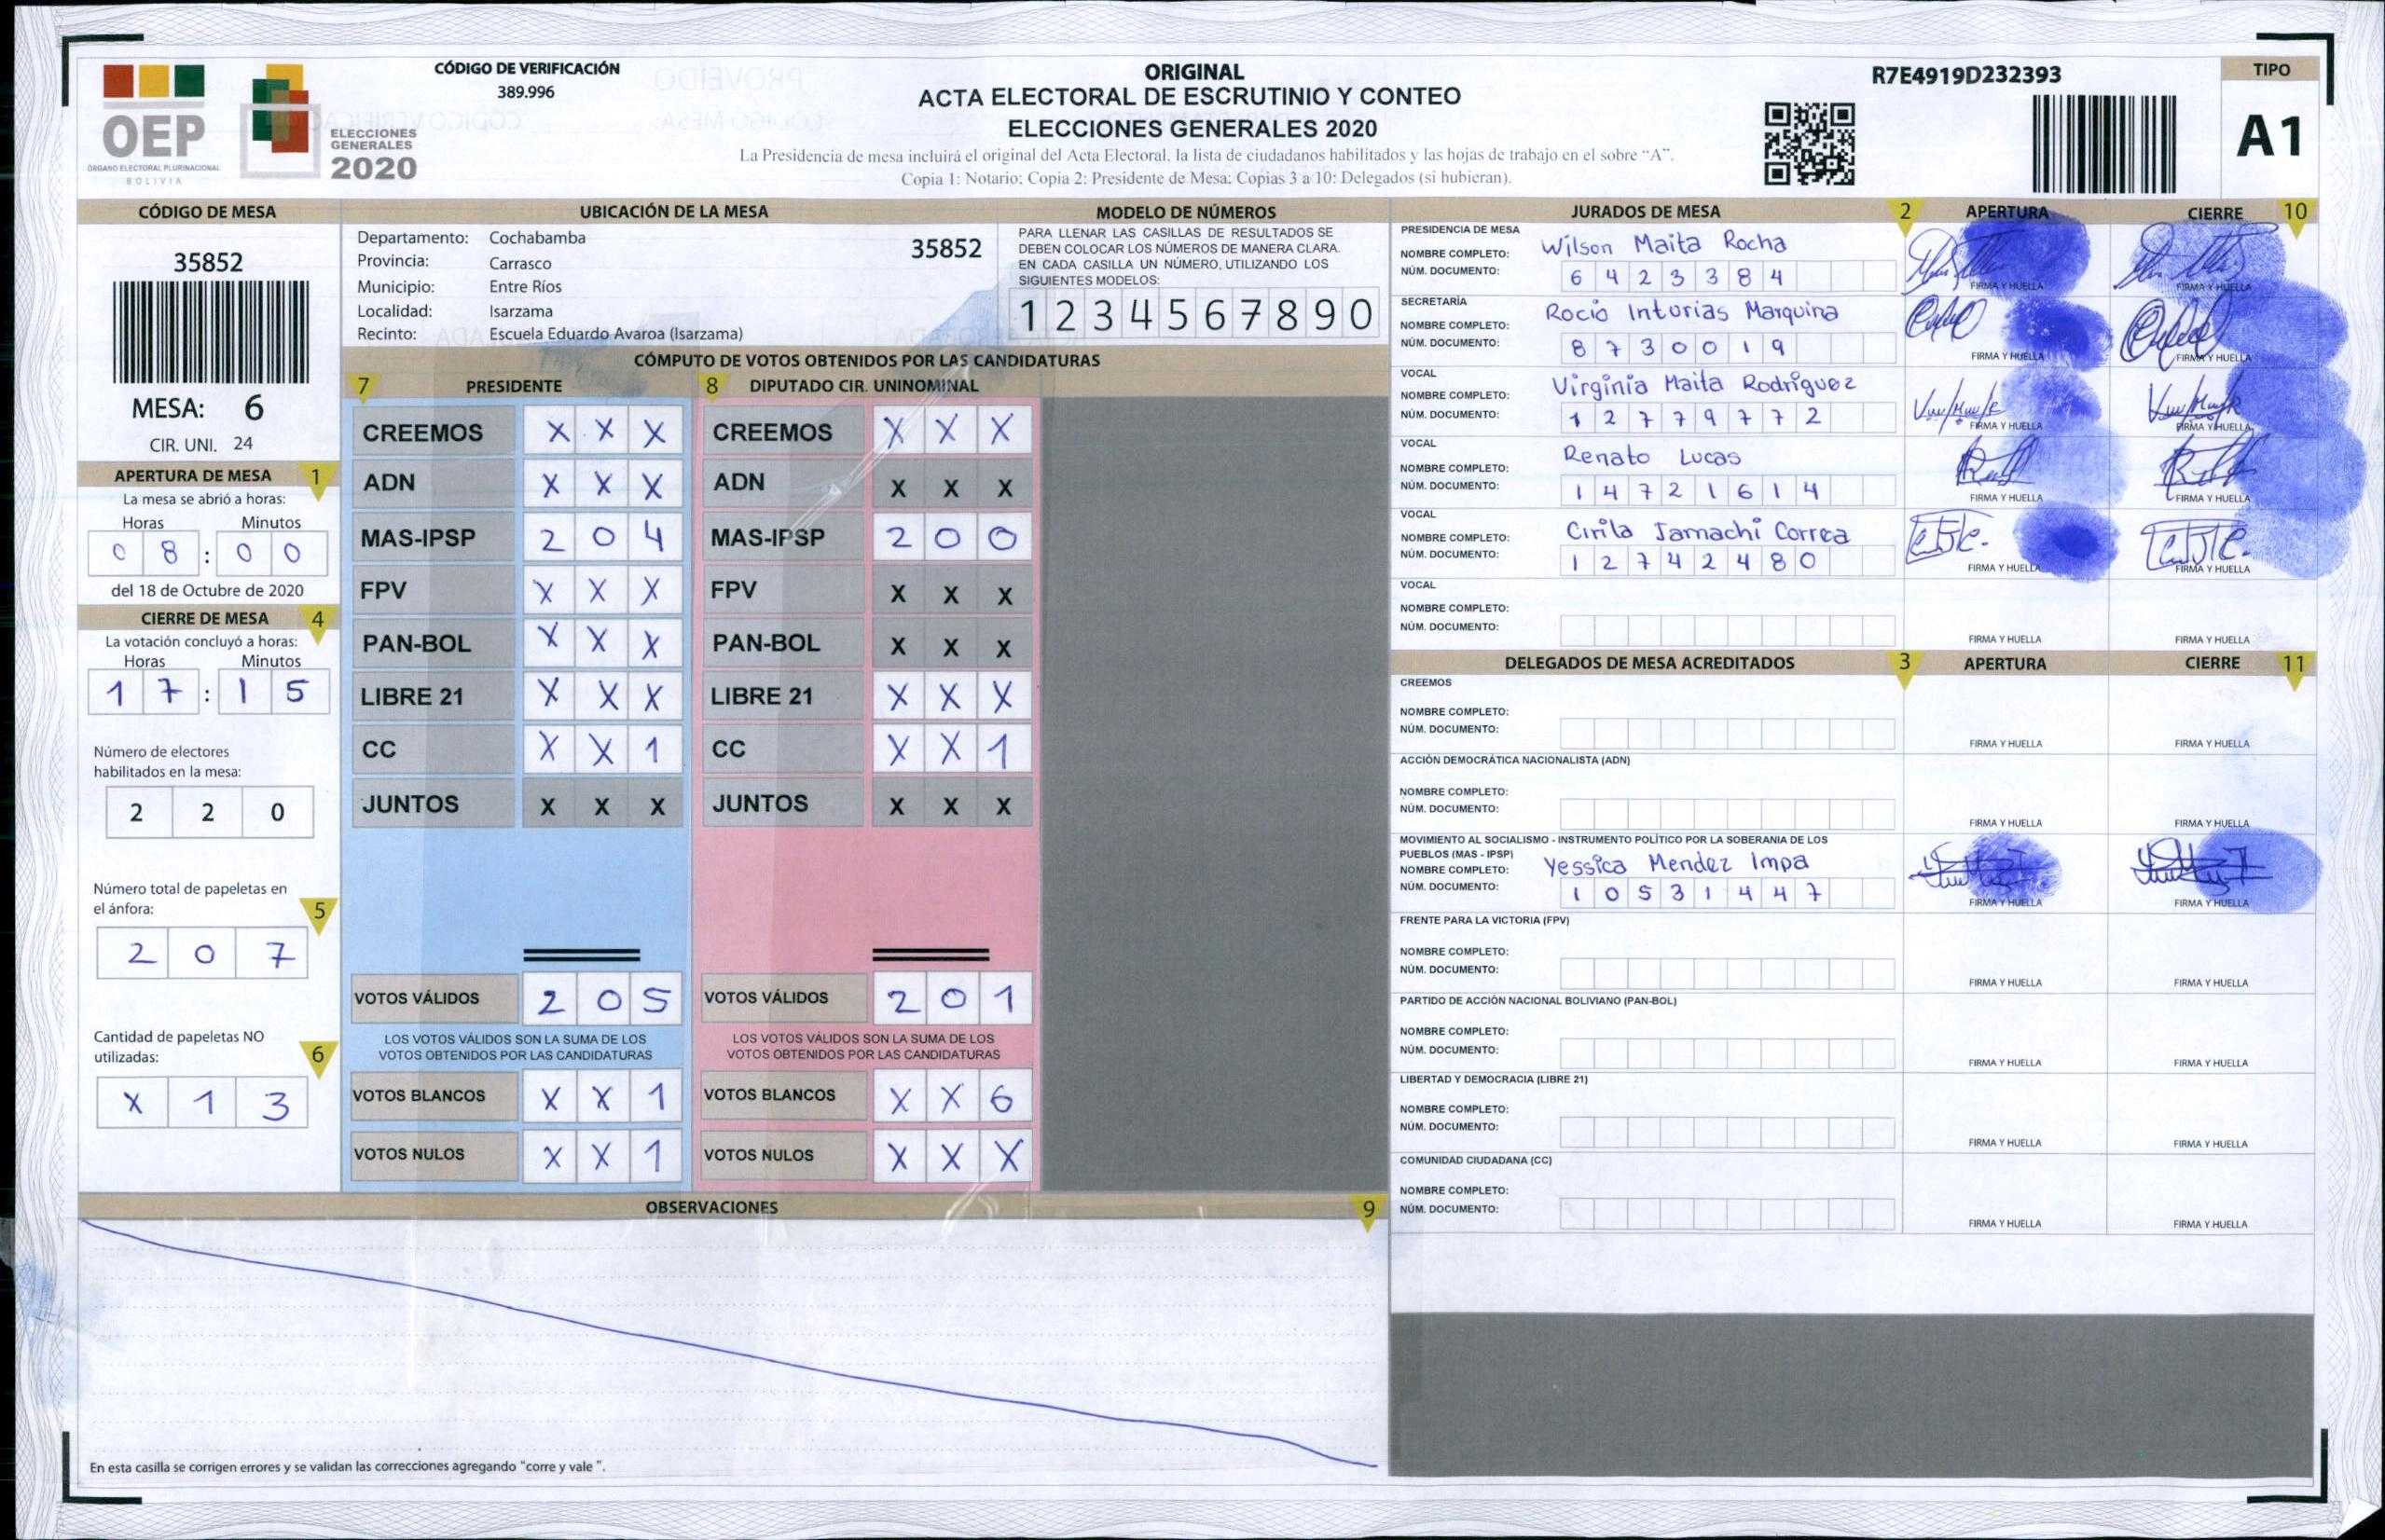 CÓDIGO DE VERIFICACIÓN
389.996
OEP
ÓRGANO ELECTORAL PLURINACIONAL
BOLIVIA
ELECCIONES
GENERALES
2020
ORIGINAL
ACTA ELECTORAL DE ESCRUTINIO Y CONTEO
ELECCIONES GENERALES 2020
La Presidencia de mesa incluirá el original del Acta Electoral, la lista de ciudadanos habilitados y las hojas de trabajo en el sobre “A”.
Copia 1: Notario; Copia 2: Presidente de Mesa; Copias 3 a 10: Delegados (si hubieran).
R7E4919D232393
TIPO
A1
CÓDIGO DE MESA
35852
MESA: 6
CIR. UNI. 24
APERTURA DE MESA 1
La mesa se abrió a horas:
Horas Minutos
0 8 : 0 0
del 18 de Octubre de 2020
CIERRE DE MESA 4
La votación concluyó a horas:
Horas Minutos
1 7 : 1 5
Número de electores
habilitados en la mesa:
2 2 0
Número total de papeletas en
el ánfora: 5
2 0 7
Cantidad de papeletas NO
utilizadas: 6
X 1 3
UBICACIÓN DE LA MESA
Departamento: Cochabamba 35852
Provincia: Carrasco
Municipio: Entre Ríos
Localidad: Isarzama
Recinto: Escuela Eduardo Avaroa (Isarzama)
MODELO DE NÚMEROS
PARA LLENAR LAS CASILLAS DE RESULTADOS SE
DEBEN COLOCAR LOS NÚMEROS DE MANERA CLARA.
EN CADA CASILLA UN NÚMERO, UTILIZANDO LOS
SIGUIENTES MODELOS:
1 2 3 4 5 6 7 8 9 0
CÓMPUTO DE VOTOS OBTENIDOS POR LAS CANDIDATURAS
7 PRESIDENTE 8 DIPUTADO CIR. UNINOMINAL
CREEMOS X X X CREEMOS X X X
ADN X X X ADN X X X
MAS-IPSP 2 0 4 MAS-IPSP 2 0 0
FPV X X X FPV X X X
PAN-BOL X X X PAN-BOL X X X
LIBRE 21 X X X LIBRE 21 X X X
CC X X 1 CC X X 1
JUNTOS X X X JUNTOS X X X
VOTOS VÁLIDOS 2 0 5 VOTOS VÁLIDOS 2 0 1
LOS VOTOS VÁLIDOS SON LA SUMA DE LOS LOS VOTOS VÁLIDOS SON LA SUMA DE LOS
VOTOS OBTENIDOS POR LAS CANDIDATURAS VOTOS OBTENIDOS POR LAS CANDIDATURAS
VOTOS BLANCOS X X 1 VOTOS BLANCOS X X 6
VOTOS NULOS X X 1 VOTOS NULOS X X X
OBSERVACIONES 9
En esta casilla se corrigen errores y se validan las correcciones agregando “corre y vale ”.
JURADOS DE MESA 2 APERTURA CIERRE 10
PRESIDENCIA DE MESA
NOMBRE COMPLETO: Wilson Maita Rocha
NÚM. DOCUMENTO: 6 4 2 3 3 8 4
FIRMA Y HUELLA FIRMA Y HUELLA
SECRETARÍA
NOMBRE COMPLETO: Rocio Inturias Marquina
NÚM. DOCUMENTO: 8 7 3 0 0 1 9
FIRMA Y HUELLA FIRMA Y HUELLA
VOCAL
NOMBRE COMPLETO: Virginia Maita Rodriguez
NÚM. DOCUMENTO: 1 2 7 7 9 7 7 2
FIRMA Y HUELLA FIRMA Y HUELLA
VOCAL
NOMBRE COMPLETO: Renato Lucas
NÚM. DOCUMENTO: 1 4 7 2 1 6 1 4
FIRMA Y HUELLA FIRMA Y HUELLA
VOCAL
NOMBRE COMPLETO: Cirila Jamachi Correa
NÚM. DOCUMENTO: 1 2 7 4 2 4 8 0
FIRMA Y HUELLA FIRMA Y HUELLA
VOCAL
NOMBRE COMPLETO:
NÚM. DOCUMENTO:
FIRMA Y HUELLA FIRMA Y HUELLA
DELEGADOS DE MESA ACREDITADOS 3 APERTURA CIERRE 11
CREEMOS
NOMBRE COMPLETO:
NÚM. DOCUMENTO:
FIRMA Y HUELLA FIRMA Y HUELLA
ACCIÓN DEMOCRÁTICA NACIONALISTA (ADN)
NOMBRE COMPLETO:
NÚM. DOCUMENTO:
FIRMA Y HUELLA FIRMA Y HUELLA
MOVIMIENTO AL SOCIALISMO - INSTRUMENTO POLÍTICO POR LA SOBERANIA DE LOS
PUEBLOS (MAS - IPSP)
NOMBRE COMPLETO: Yessica Mendez Impa
NÚM. DOCUMENTO: 1 0 5 3 1 4 4 7
FIRMA Y HUELLA FIRMA Y HUELLA
FRENTE PARA LA VICTORIA (FPV)
NOMBRE COMPLETO:
NÚM. DOCUMENTO:
FIRMA Y HUELLA FIRMA Y HUELLA
PARTIDO DE ACCIÓN NACIONAL BOLIVIANO (PAN-BOL)
NOMBRE COMPLETO:
NÚM. DOCUMENTO:
FIRMA Y HUELLA FIRMA Y HUELLA
LIBERTAD Y DEMOCRACIA (LIBRE 21)
NOMBRE COMPLETO:
NÚM. DOCUMENTO:
FIRMA Y HUELLA FIRMA Y HUELLA
COMUNIDAD CIUDADANA (CC)
NOMBRE COMPLETO:
NÚM. DOCUMENTO:
FIRMA Y HUELLA FIRMA Y HUELLA